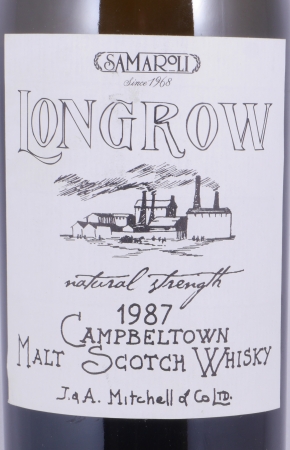 SAMAROLI
Since 1968
LONGROW
natural strength
1987
CAMPBELTOWN
MALT SCOTCH WHISKY
J. & A. Mitchell & Co LTD.